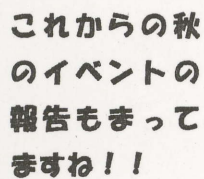 これからの秋
のイベントの
報告もまって
ますね！！